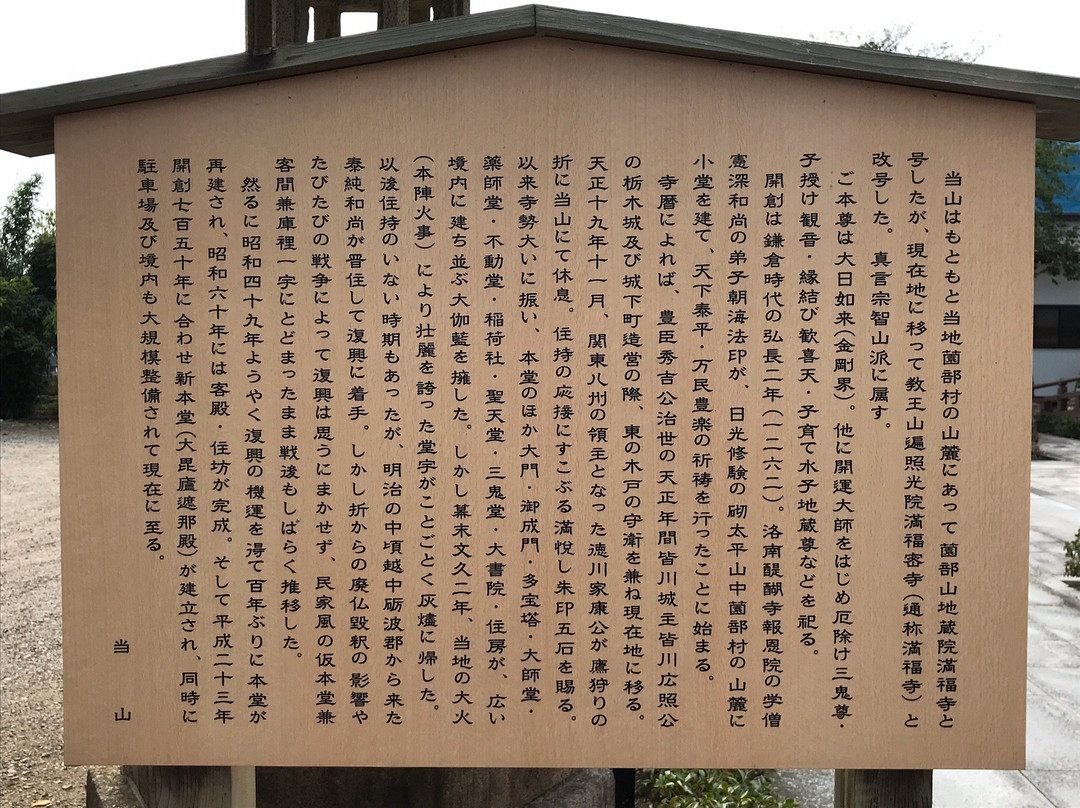 当山はもともと当地薗部村の山麓にあって薗部山地蔵院満福寺と
号したが、現在地に移って教王山遍照光院滿福密寺（通称満福寺）と
改号した。真言宗智山派に属す。
ご本尊は大日如来（金剛界）。他に開運大師をはじめ厄除け三鬼尊・
子授け観音・縁結び歓喜天・子育て水子地蔵尊などを祀る。
開創は鎌倉時代の弘長二年（一二六二）。洛南醍醐寺報恩院の学僧
憲深和尚の弟子朝海法印が、日光修験の砌太平山中薗部村の山麓に
小堂を建て、天下泰平・万民豊楽の祈祷を行ったことに始まる。
寺暦によれば、豊臣秀吉公治世の天正年間皆川城主皆川広照公
の栃木城及び城下町造営の際、東の木戸の守衛を兼ね現在地に移る。
天正十九年十一月、関東八州の領主となった徳川家康公が鷹狩りの
折に当山にて休息。住持の応接にすこぶる満悦し朱印五石を賜る。
以来寺勢大いに振い、本堂のほか大門・御成門・多宝塔・大師堂・
薬師堂・不動堂・稲荷社・聖天堂・三鬼堂・大書院・住房が、広い
境内に建ち並ぶ大伽藍を擁した。しかし幕末文久二年、当地の大火
（本陣火事）により壮麗を誇った堂宇がことごとく灰燼に帰した。
以後住持のいない時期もあったが、明治の中頃越中砺波郡から来た
泰純和尚が晋住して復興に着手。しかし折からの廃仏毀釈の影響や
たびたびの戦争によって復興は思うにまかせず、民家風の仮本堂兼
客間兼庫裡一宇にとどまったまま戦後もしばらく推移した。
然るに昭和四十九年ようやく復興の機運を得て百年ぶりに本堂が
再建され、昭和六十年には客殿・住坊が完成。そして平成二十三年
開創七百五十年に合わせ新本堂（大毘廬遮那殿）が建立され、同時に
駐車場及び境内も大規模整備されて現在に至る。
当山